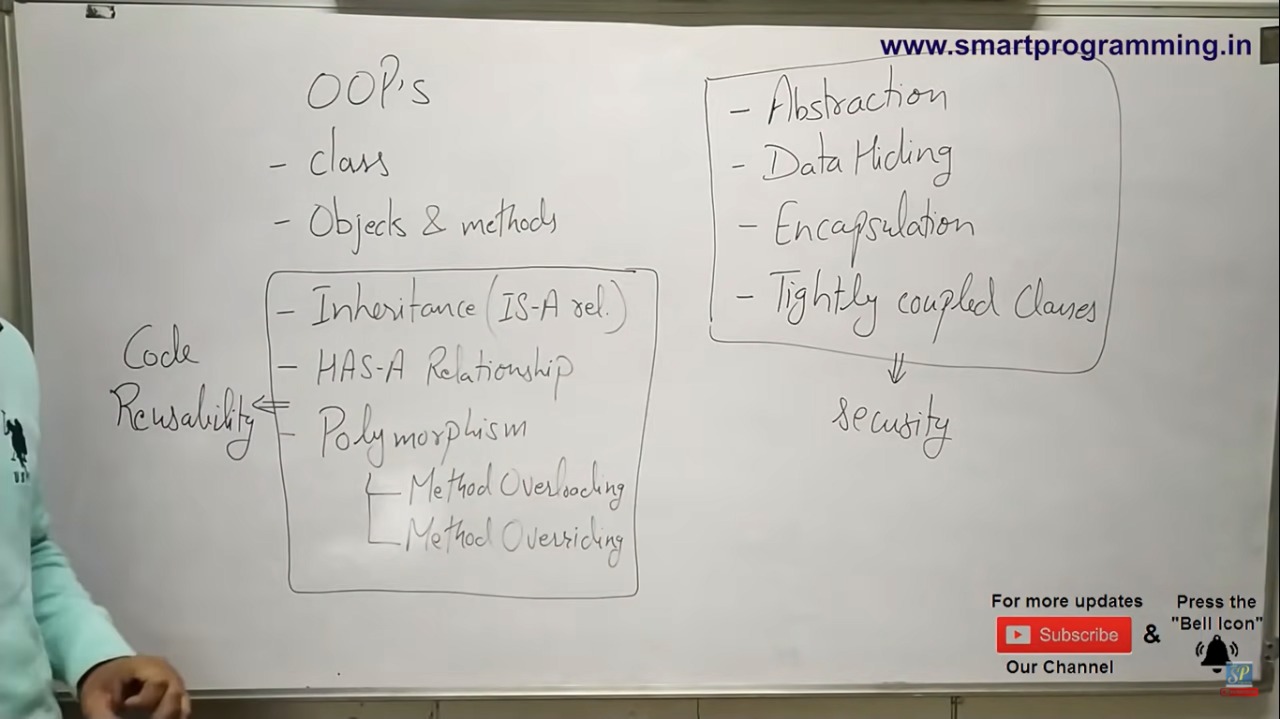 www.smartprogramming.in
OOP's
- class
- Objects & methods
- Inheritance (IS-A rel.)
- HAS-A Relationship
- Polymorphism
Method Overloading
Method Overriding
Code
Reusability
- Abstraction
- Data Hiding
- Encapsulation
- Tightly coupled Classes
security
For more updates
Subscribe
Our Channel
&
Press the
"Bell Icon"
SP